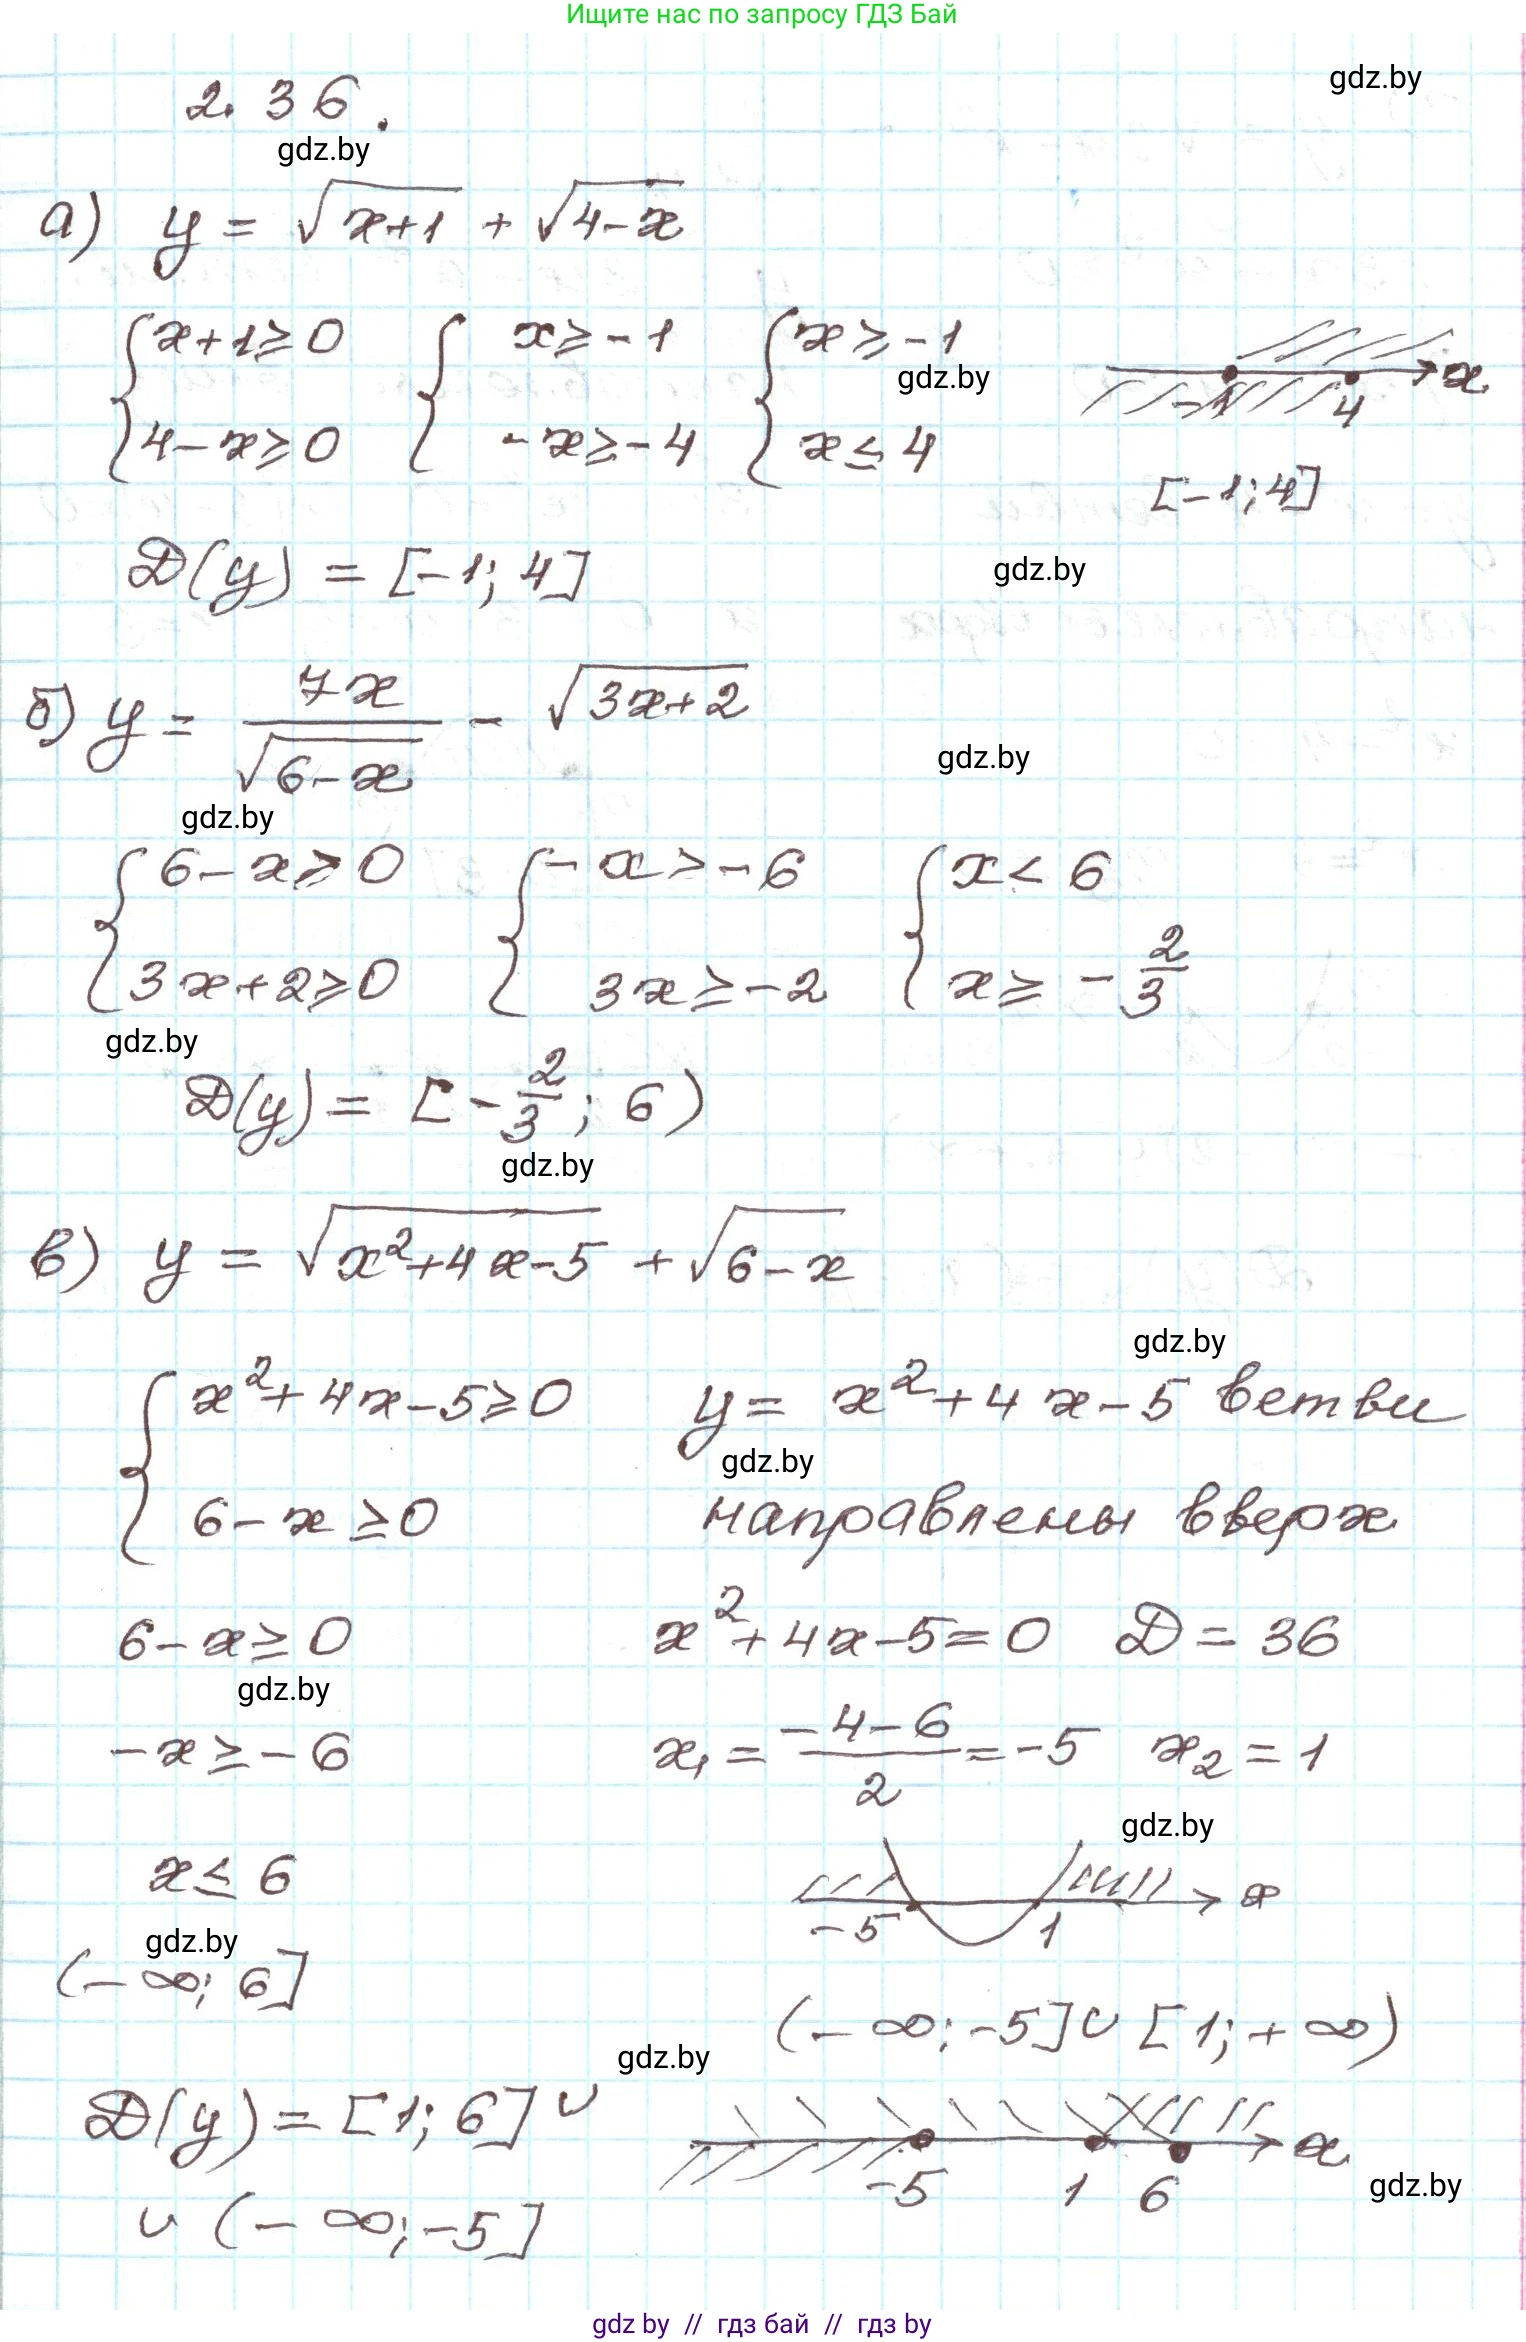 Ищите нас по запросу ГДЗ Бай
gdz.by
2.36.
gdz.by
а) y = √(x+1) + √(4-x)
{x+1≥0 { x≥-1 {x≥-1
gdz.by
x
-1 4
4-x≥0 -x≥-4 x≤4
[-1;4]
D(y) = [-1;4]
gdz.by
б) y = 7x/√(6-x) - √(3x+2)
gdz.by
gdz.by
{6-x>0 {-x>-6 {x<6
3x+2≥0 3x≥-2 x≥-2/3
gdz.by
D(y) = [-2/3; 6)
gdz.by
в) y = √(x²+4x-5) + √(6-x)
gdz.by
{x²+4x-5≥0 y = x²+4x-5 ветви
gdz.by
6-x≥0 направлены вверх
6-x≥0 x²+4x-5=0 D=36
gdz.by
-x≥-6 x₁ = (-4-6)/2 = -5 x₂=1
gdz.by
x≤6 x
-5 1
gdz.by
(-∞;6]
(-∞;-5]∪[1;+∞)
gdz.by
D(y)=[1;6]∪ x
-5 1 6
gdz.by
∪(-∞;-5]
gdz by // гдз бай // гдз by